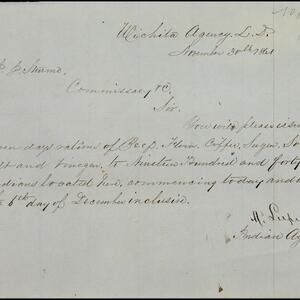 Wichita Agency L.D.
November 30th 1861
J. J. Sturm
Commissary &C.
Sir.
You will please issue
days rations of Beef, Flour, Coffee, Sugar, So
and vinegar, to Nineteen Hundred and forty
located here, commencing to day and
6th day of December inclusive.
M. Leeper
Indian Ag